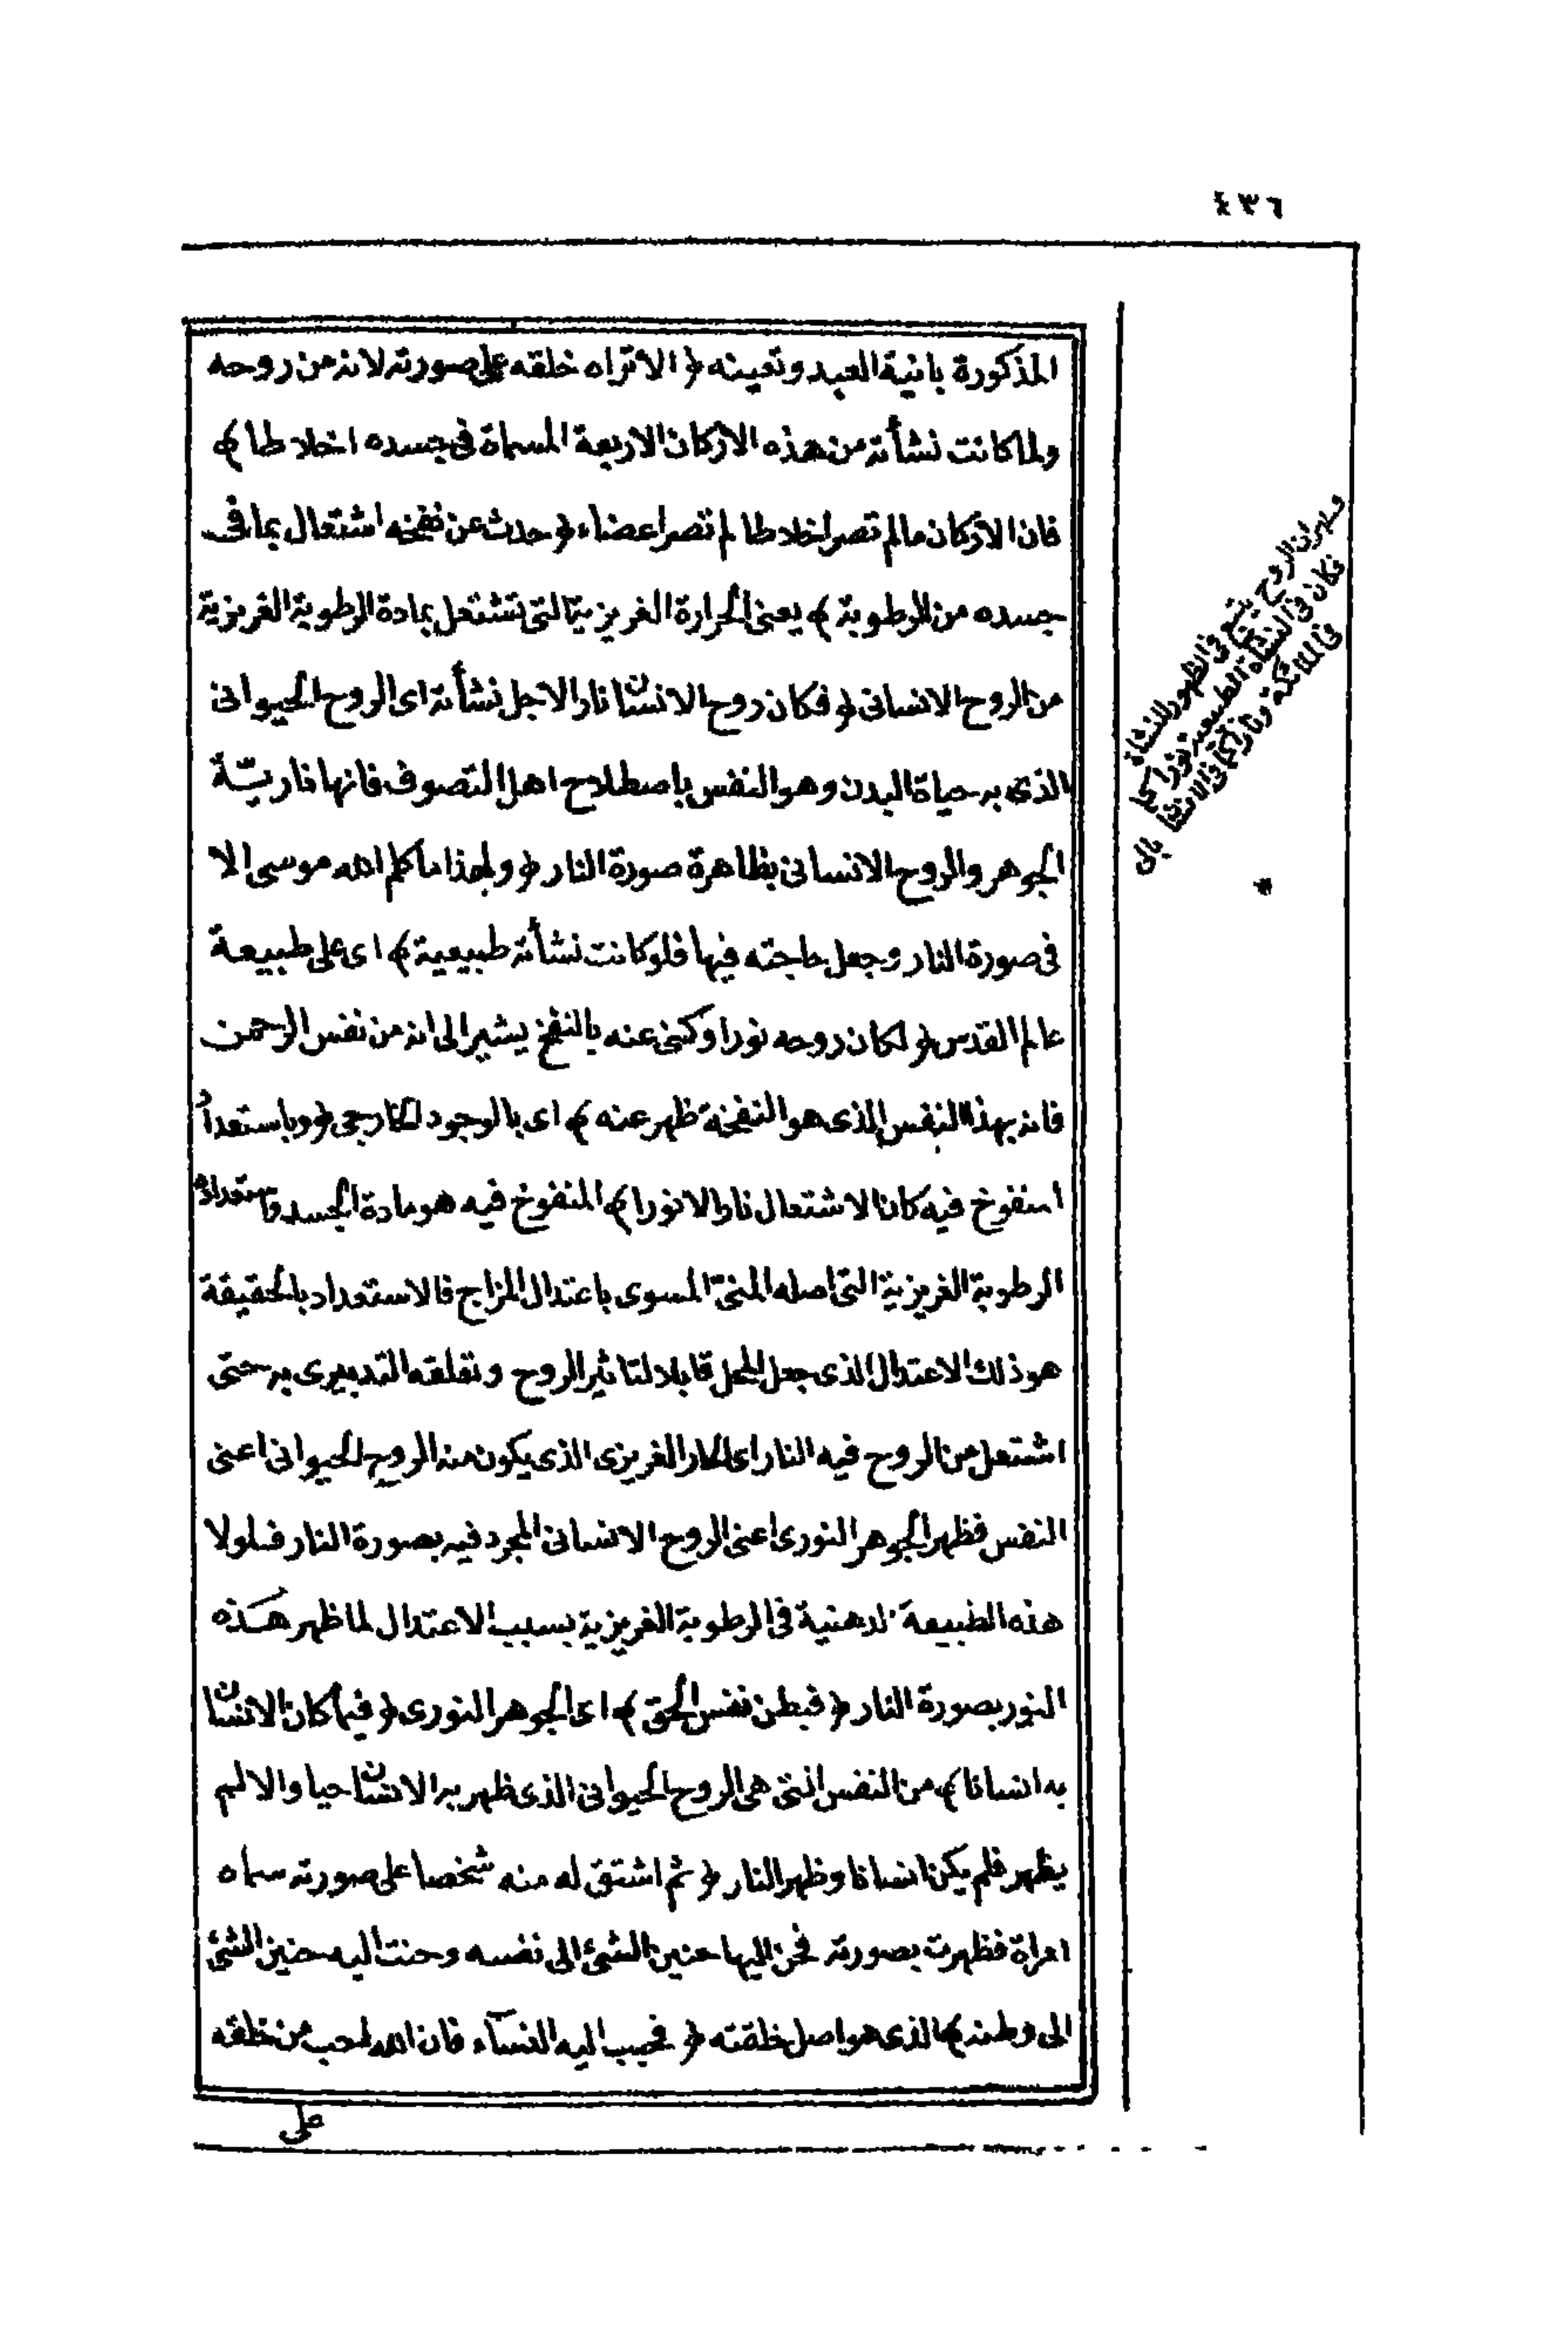 ٤٣٦
المذكورة بانية العبد وتعينه ﴿ الا تراه خلقه على صورته لانه من روحه
ولما كانت نشأته من هذه الاركان الاربعة المسماة فى جسده اخلاطا ﴾
فان الاركان مالم تصر اخلاطا لم تصر اعضاء ﴿ حدث عن نفخه اشتعال بما فى
جسده من الرطوبة ﴾ يعنى الحرارة الغريزية التى تشتعل بمادة الرطوبة الغريزية
من الروح الانسانى ﴿ فكان روح الانسان نارا لاجل نشأته اى الروح الحيوانى
الذى به حياة البدن وهو النفس باصطلاح اهل التصوف فانها نارية
الجوهر والروح الانسانى بظاهرة صورة النار ﴿ ولهذا ما كلم الله موسى الا
فى صورة النار وجعل حاجته فيها فلو كانت نشأته طبيعية ﴾ اى على طبيعة
عالم القدس ﴿ لكان روحه نورا وكنى عنه بالنفخ يشير الى انه من نفس الرحمن
فانه بهذا النفس الذى هو النفخة ظهر عنه ﴾ اى بالوجود الخارجى ﴿ وباستعداد
المنفوخ فيه كان الاشتعال نارا لا نورا ﴾ المنفوخ فيه هو مادة الجسد واستعداده
الرطوبة الغريزية التى اصله المنى المسوى باعتدال المزاج فالاستعداد بالحقيقة
هو ذلك الاعتدال الذى جعل المحل قابلا لتاثير الروح وتعلقه التدبيرى به حتى
اشتعل من الروح فيه النار اى الحار الغريزى الذى يكون منه الروح الحيوانى اعنى
النفس فظهر الجوهر النورى اعنى الروح الانسانى المجرد فيه بصورة النار فلولا
هذه الطبيعة الدهنية فى الرطوبة الغريزية بسبب الاعتدال لما ظهر هذه
النور بصورة النار ﴿ فبطن نفس الحق ﴾ اى الجوهر النورى ﴿ فيما كان الانسان
به انسانا ﴾ من النفس التى هى الروح الحيوانى الذى ظهر به الانسان حيا والا لم
يظهر فلم يكن انسانا وظهر النار ﴿ ثم اشتق له منه شخصا على صورته سماه
امراة فظهرت بصورته فحن اليها حنين الشئ الى نفسه وحنت اليه حنين الشئ
الى وطنه ﴾ الذى هو اصل خلقته ﴿ فحبب اليه النساء فان الله احب من خلقه
على
ان الروح يتبع فى الظهور للنشأة
فكان فى النشأة الطبيعية نورا كما
فى الملائكة ونارا كما فى الانسان
بالى